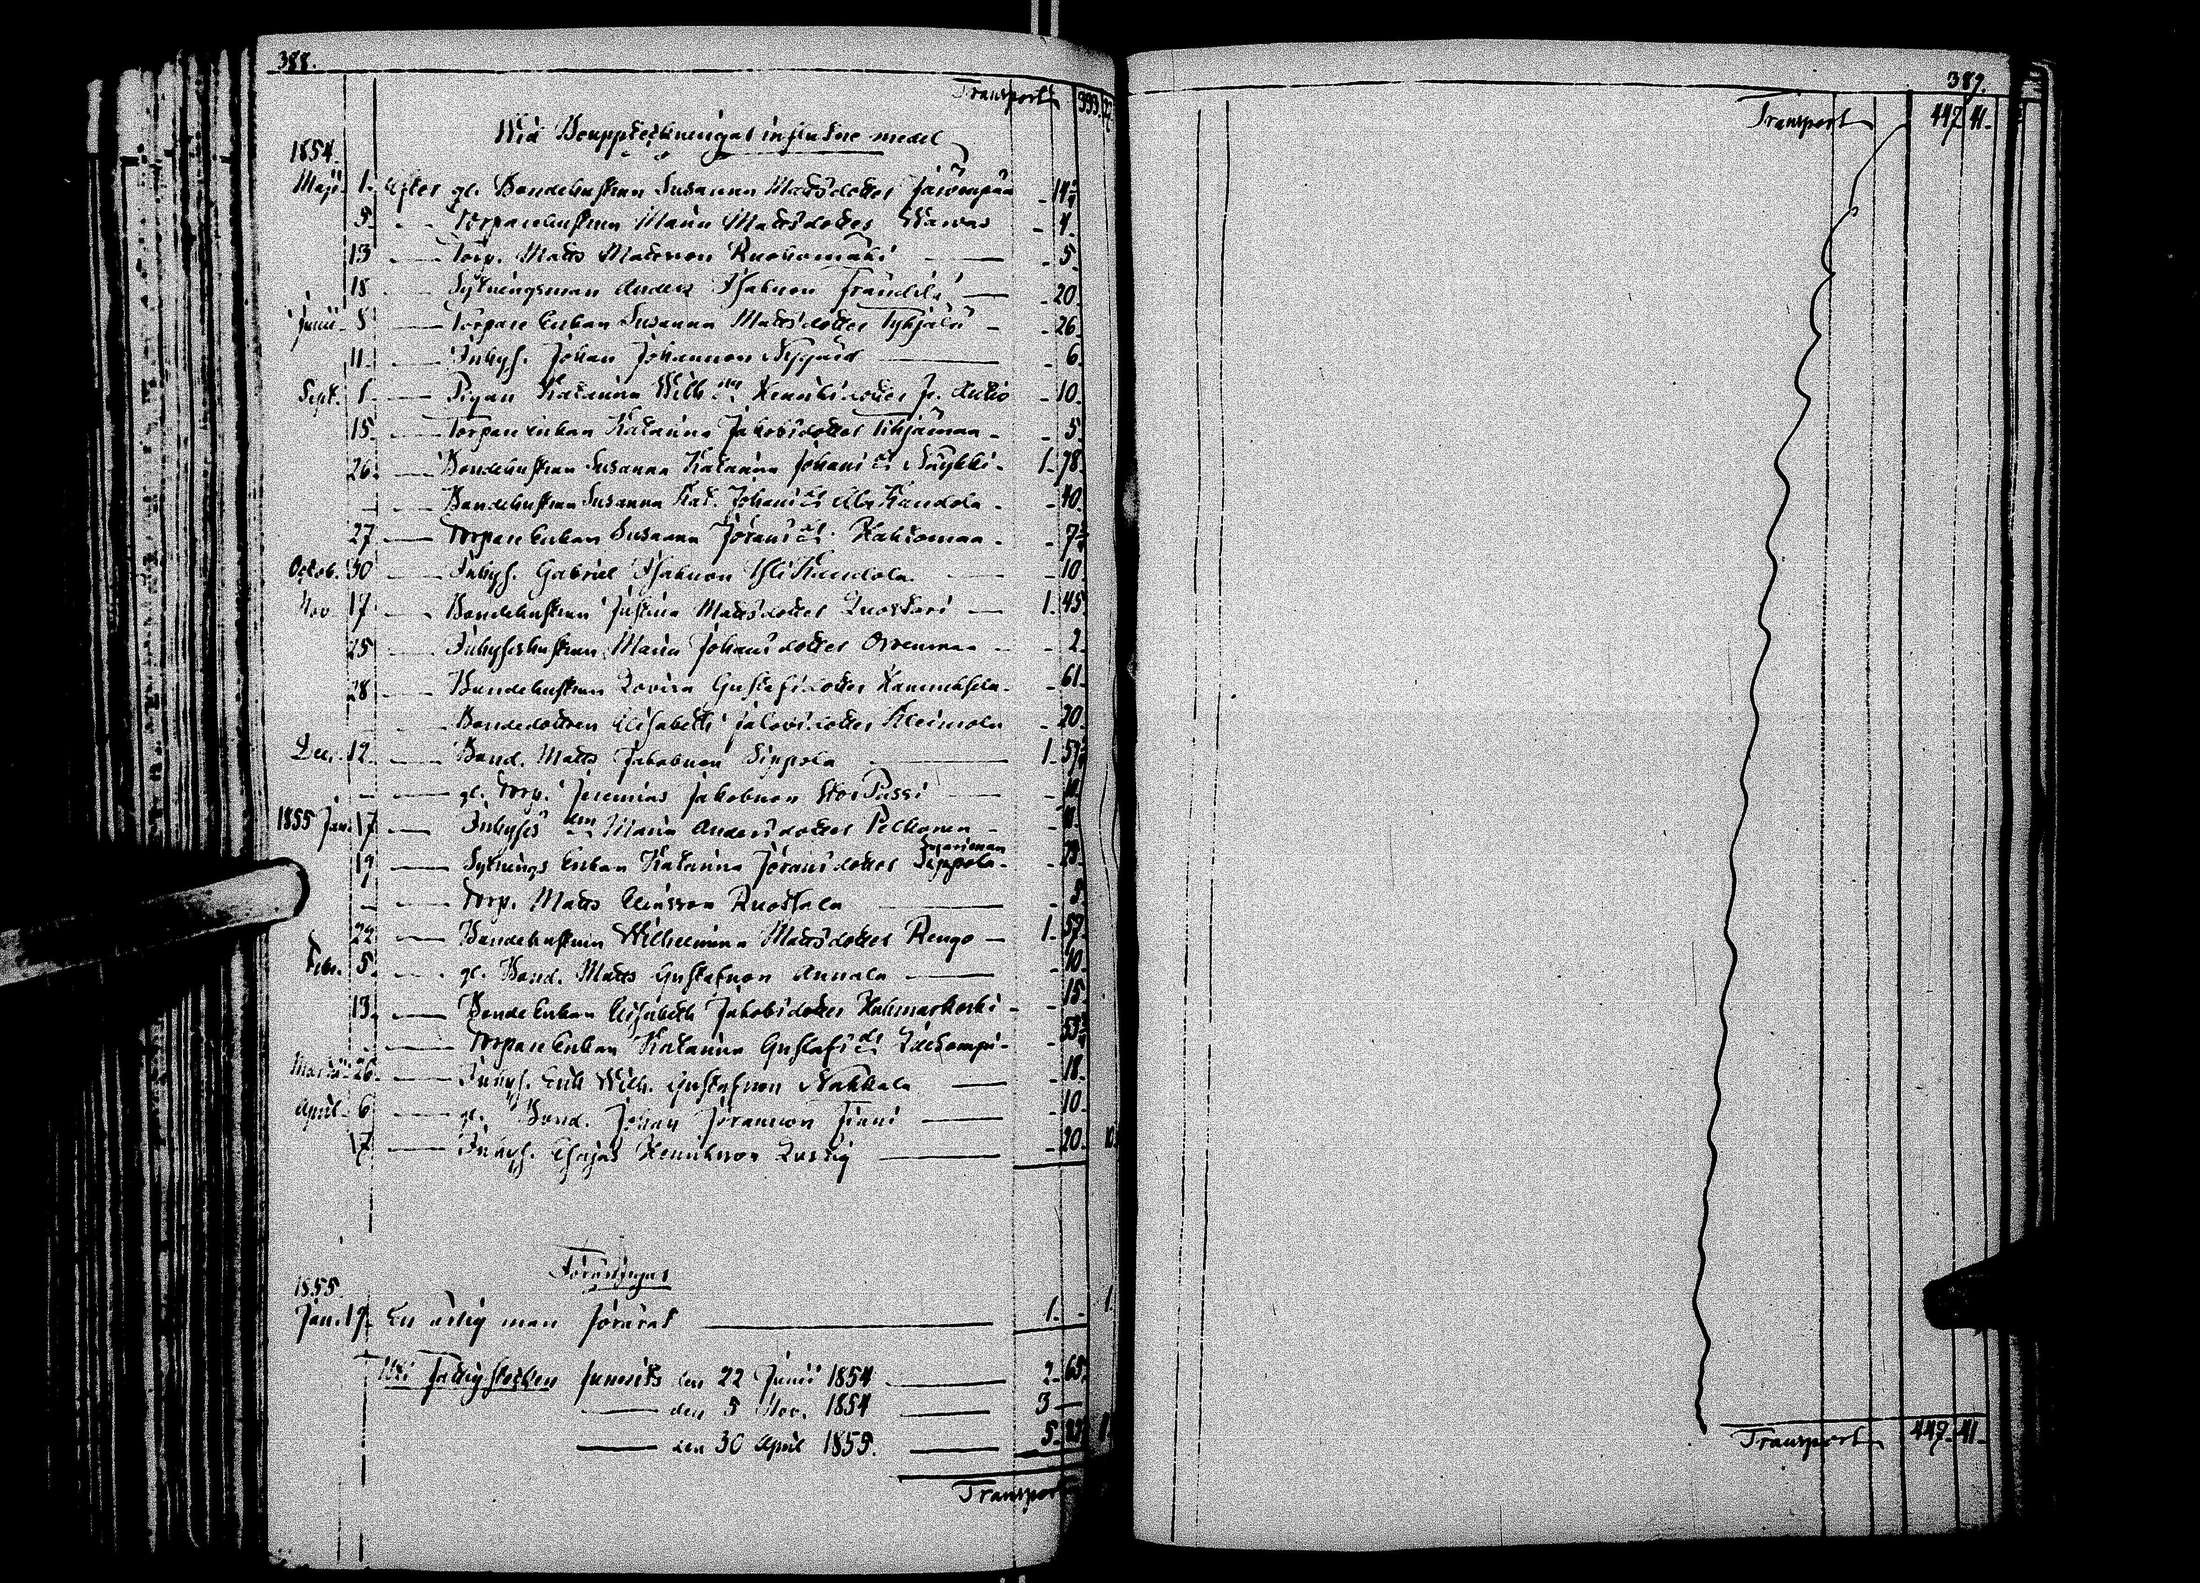 388.
Transport 393. 27
Wid Bouppteckningar influtne medel
1854.
Maji 1. Efter gl. Bondehustrun Susanna Mattsdotter - 14
5. — Torparehustrun Maria Mattsdotter Warras - 4.
13 — Torp. Matts Mattsson Ruohomäki — - 5.
18 — Sytningsman Anders Isaksson Frändilä — - 20.
Junii 8 — Torpare Enkan Susanna Mattsdotter Tyhjälä - - 26.
11 — Inhys. Johan Johansson Nygård — - 6.
Sept. 1 — Pigan Katarina Wilh:na Henriksdotter fr. Autio - 10.
15 — Torpare enkan Katarina Jakobsdotter - - 5.
26. — Bondehustrun Susanna Katarina Johansdr - 1. 78.
- — Bondehustrun Susanna Kat. Johansdr Ala Kandola - - 40.
27 — Torpare Enkan Susanna Göransdr - - 7
Octob. 30 — Inhys. Gabriel Isaksson Yli Kandola — - 10.
Nov 17 — Bondehustrun Justina Mattsdotter Luostari — 1. 45
25 — Inhyseshustrun Maria Johansdotter - - 2.
28 — Bondehustrun Lovisa Gustafsdotter - - 61.
- Bondedottren Elisabeth Jakobsdotter Kleimola - 20.
Dec. 12. — Bond. Matts Jakobsson Sippola — 1. 59
- — gl. Torp. Jeremias Jakobsson Stor Passi —
1855 Jan. 17. — Inhyses Maria Andersdotter Pelkonen -
19 — Sytnings Enkan Katarina Göransdotter Sippola - - 29.
- — Torp. Matts Eliasson Ruostala — - 5.
22 — Bondehustrun Wilhelmina Mattsdotter Rengo — 1. 57.
Febr. 5. — gl. Bond. Matts Gustafsson Annala — - 10.
13. — Bonde Enkan Elisabeth Jakobsdotter Hahmarkoski - - 15.
- — Torpare Enkan Katarina Gustafsdr - - 53
Martii 26. — Inhys. Erik Wilh. Gustafsson Nahkala — - 18.
April 6 — gl. Bond. Johan Göransson Finni — - 10.
17 — Inhys. Esajas Henriksson Lustig — - 20.
Föräringar
1855.
Jan. 17. En ärlig man förärat — 1. -
Uti Fattigstocken funnits den 22 Junii 1854 — 2. 65.
— den 5 Nov. 1854 — 3 —
— den 30 April 1855. — 5.
Transport
389.
Transport 442 41.
Transport 442. 41.